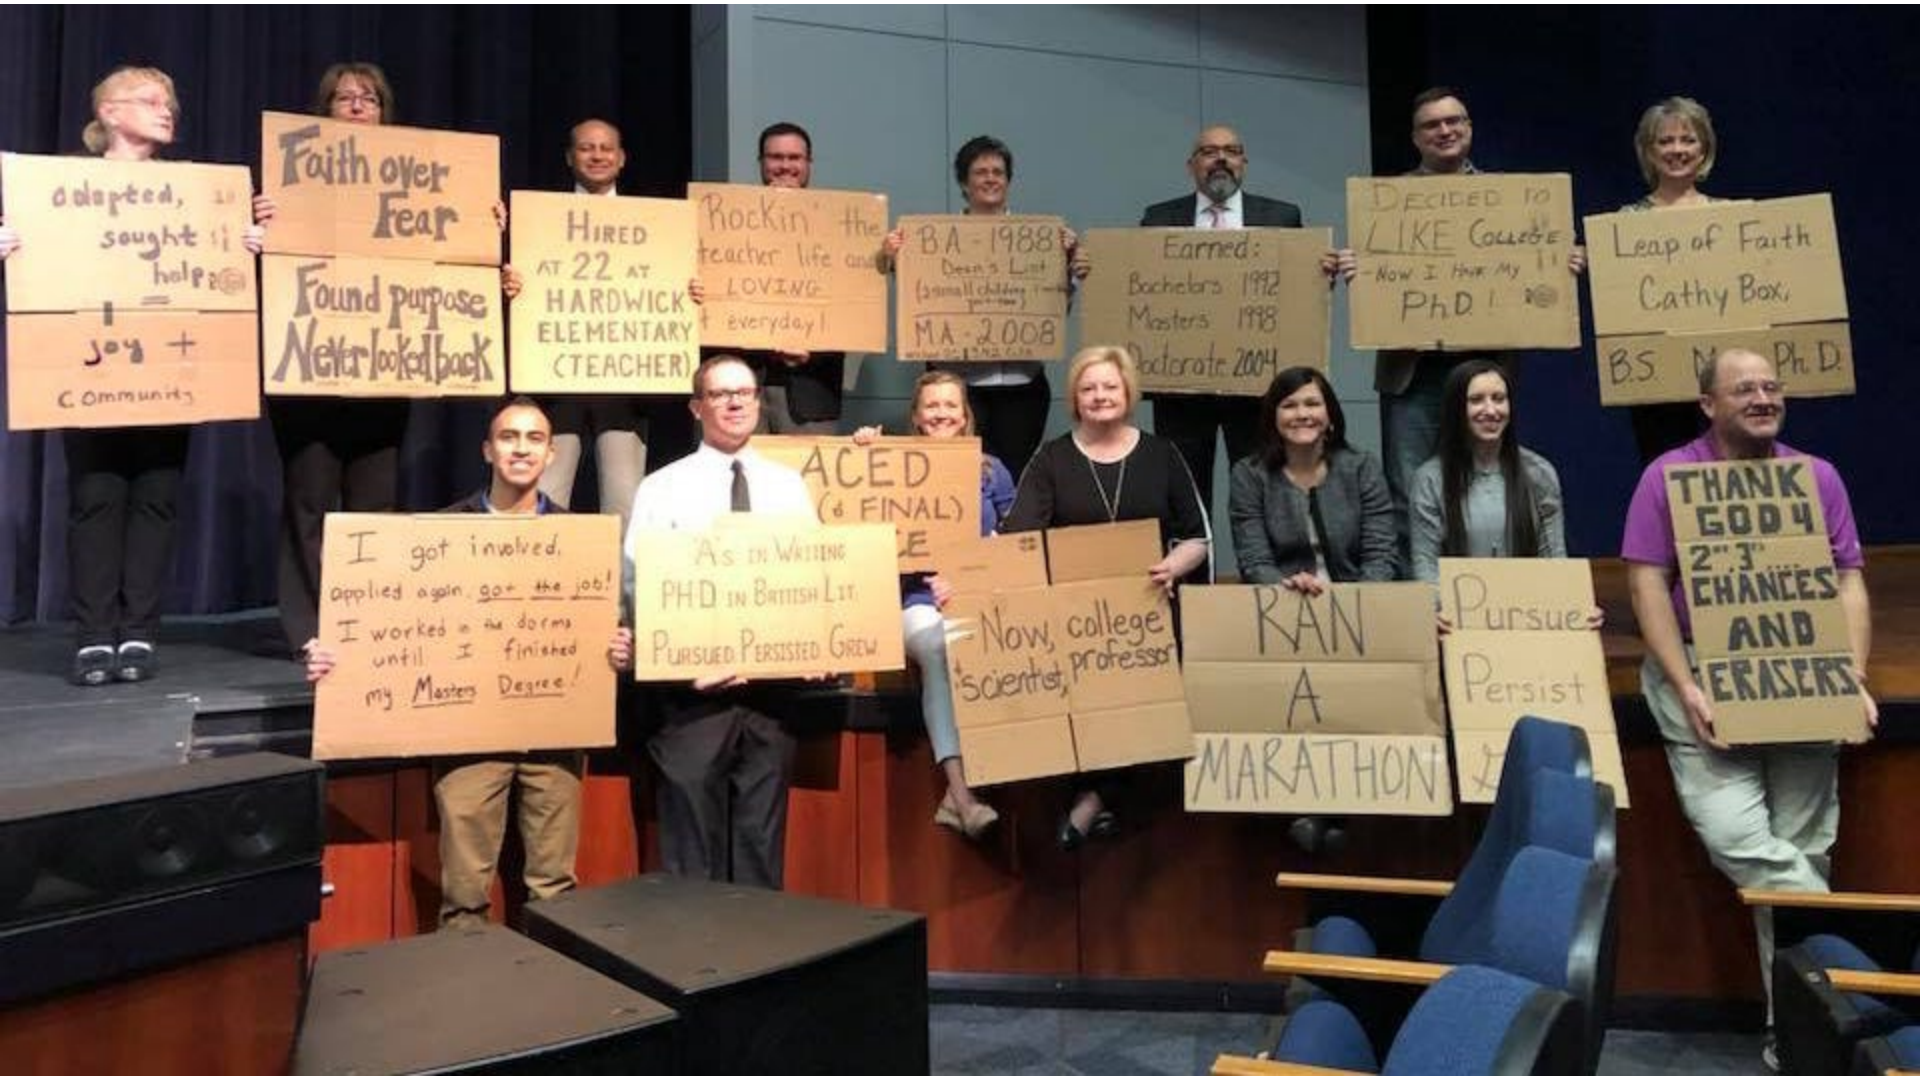 adapted,
sought
help
joy +
community
Faith over
Fear
Found purpose
Never looked back
HIRED
AT 22 AT
HARDWICK
ELEMENTARY
(TEACHER)
Rockin' the
teacher life and
LOVING
it everyday!
BA - 1988
Dean's List
MA - 2008
Earned:
Bachelors 1992
Masters 1998
Doctorate 2004
DECIDED TO
LIKE COLLEGE
- NOW I HAVE MY
PhD!
Leap of Faith
Cathy Box,
B.S. M Ph.D.
I got involved,
applied again, got the job!
I worked in the dorms
until I finished
my Masters Degree!
'A's IN WRITING
PHD IN BRITISH LIT.
PURSUED. PERSISTED. GREW
ACED
(6 FINAL)
CE
Now, college
scientist, professor
RAN
A
MARATHON
Pursue
Persist
THANK
GOD 4
2ND 3RD ....
CHANCES
AND
ERASERS